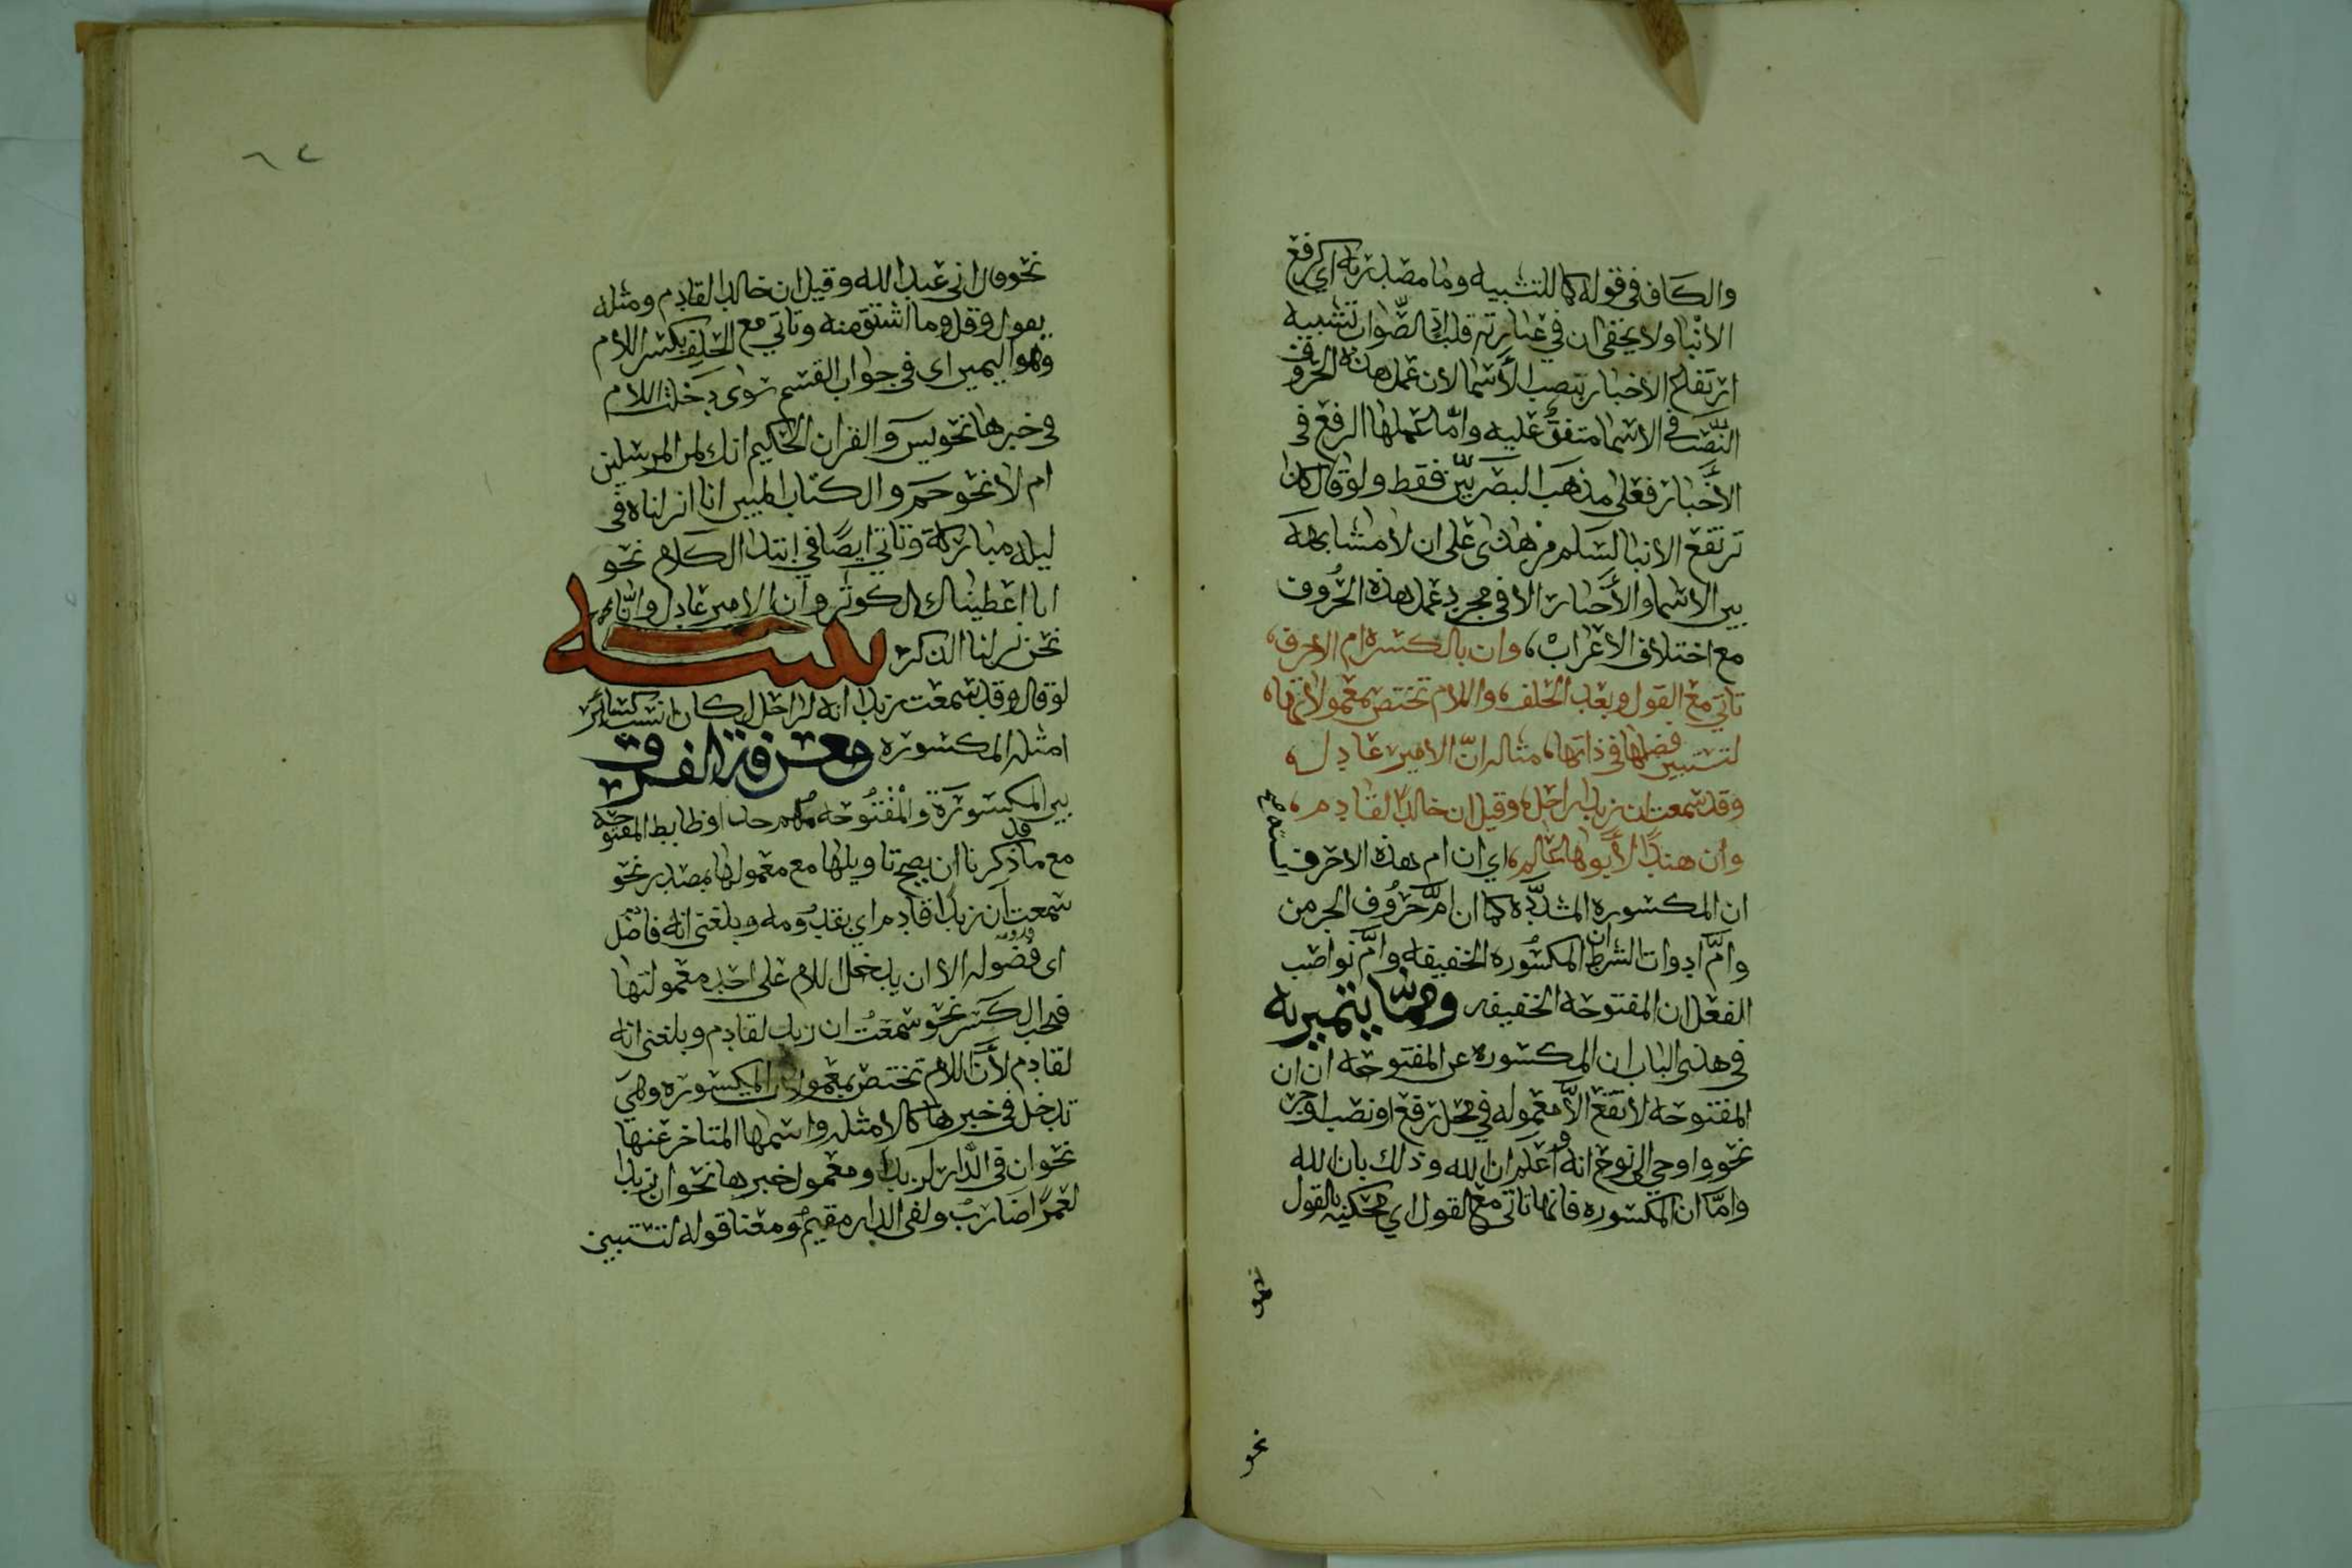 والكاف في قوله كما للتشبيه وما مصدرية اي كرفع
الانبا ولا يخفى ان في عبارته قلب اذ الصواب تشبيه
ارتفاع الاخبار بنصب الأسما لان عمل هذه الحروف
النصب في الاسما متفق عليه واما عملها الرفع في
الأخبار فعلى مذهب البصريين فقط ولو قال كما
ترتفع الانبا لسلم من هذى على ان لا مشابهة
بين الاسما والأخبار الا في مجرد عمل هذه الحروف
مع اختلاف الاعراب، وان بالكسرة ام الاحرف،
تاتي مع القول وبعد الحلف، واللام تختص بمعمولاتها،
لتستبين فضلها في ذاتها، مثاله انّ الامير عادل،
وقد سمعت ان زيدا راحل، وقيل ان خالدًا لقادم،
وان هندًا لأبوها عالم، اي ان ام هذه الاحرف
ان المكسورة المشددة كما ان امّ حروف الجر من
وامّ ادوات الشرط ان المكسورة الخفيفة وامّ نواصب
الفعل ان المفتوحة الخفيفة ومما يتميز به
في هذى الباب ان المكسورة عن المفتوحة ان ان
المفتوحة لا تقع الّا معمولة في محل رفع او نصب او جر
نحو واوحي الى نوح انه واعلم ان الله وذلك بان الله
وامّا ان المكسورة فانها تاتي مع القول اي محكية بالقول
نحو
٦٢
نحو قال اني عبد الله وقيل ان خالدا لقادم ومثله
يقول وقل وما اشتق منه وتاتي مع الحلف بكسر اللام
وهو اليمين اي في جواب القسم سوى دخلت اللام
في خبرها نحو يس والقران الحكيم انك لمن المرسلين
ام لا نحو حم والكتاب المبين انا انزلناه في
ليلة مباركة وتاتي ايضًا في ابتدا الكلام نحو
انا اعطيناك الكوثر وان الامير عادل وانّا
نحن نزلنا الذكر
لو قال وقد سمعت زيدا انه لراحل لكان انسب كسائر
امثلة المكسورة معرفة الفرق
بين المكسورة والمفتوحة مهم جدا وضابط المفتوحة
مع ما قد ذكرنا ان يصح تاويلها مع معمولها بمصدر نحو
سمعت ان زيدًا قادم اي بقدومه وبلغني انه فاضل
اي فضوله الا ان يدخل اللام على احد معمولتها
فيجب الكسر نحو سمعت ان زيد لقادم وبلغني انه
لقادم لأن اللام تختص بمعمولات المكسورة وهي
تدخل في خبرها كالامثلة واسمها المتاخر عنها
نحو ان في الدار لزيدا ومعمول خبرها نحو ان زيدا
لعمرًا ضاربٌ ولفي الدار مقيم ومعنا قوله لتستبين